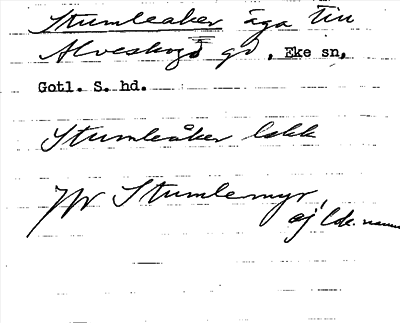 Stumleåker äga till
Alveskogs gd, Eke sn,
Gotl. S. hd.
Stumleåker lokk
Jfr Stumlemyr,
ej lok. namn